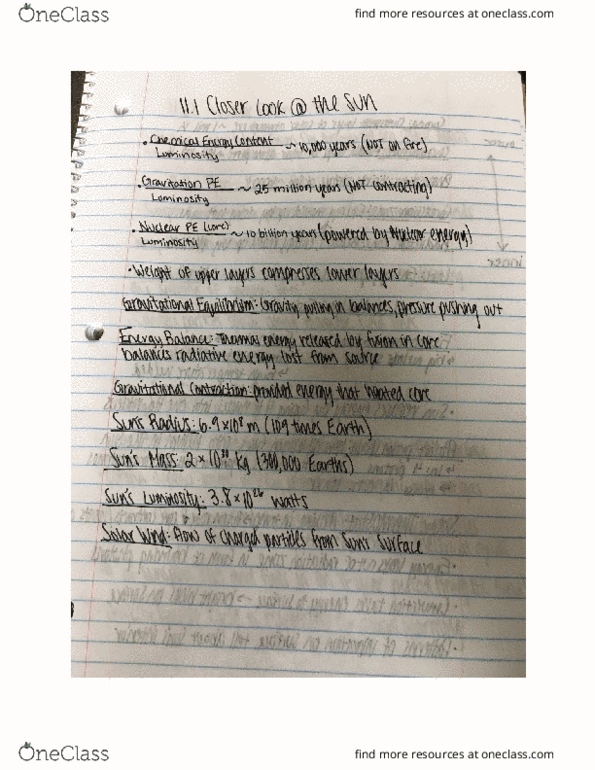 OneClass
find more resources at oneclass.com
11.1 Closer Look @ the Sun
• Chemical Energy Content
Luminosity
~ 10,000 years (NOT on fire)
• Gravitation PE
Luminosity
~ 25 million years (NOT contracting)
• Nuclear PE (core)
Luminosity
~ 10 billion years (powered by Nuclear energy)
• Weight of upper layers compresses lower layers
Gravitational Equilibrium: Gravity pulling in balances, pressure pushing out
Energy Balance: Thermal energy released by fusion in core
balances radiative energy lost from source
Gravitational Contraction: provided energy that heated core
Sun's Radius: 6.9 × 10⁸ m (109 times Earth)
Sun's Mass: 2 × 10³⁰ kg (300,000 Earths)
Sun's Luminosity: 3.8 × 10²⁶ watts
Solar Wind: flow of charged particles from Sun's surface
OneClass
find more resources at oneclass.com